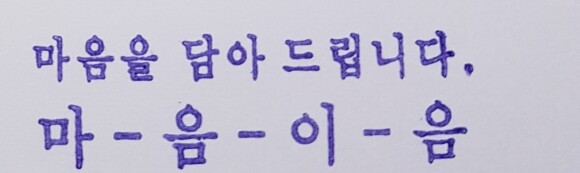 마음을 담아 드립니다.
마-음-이-음